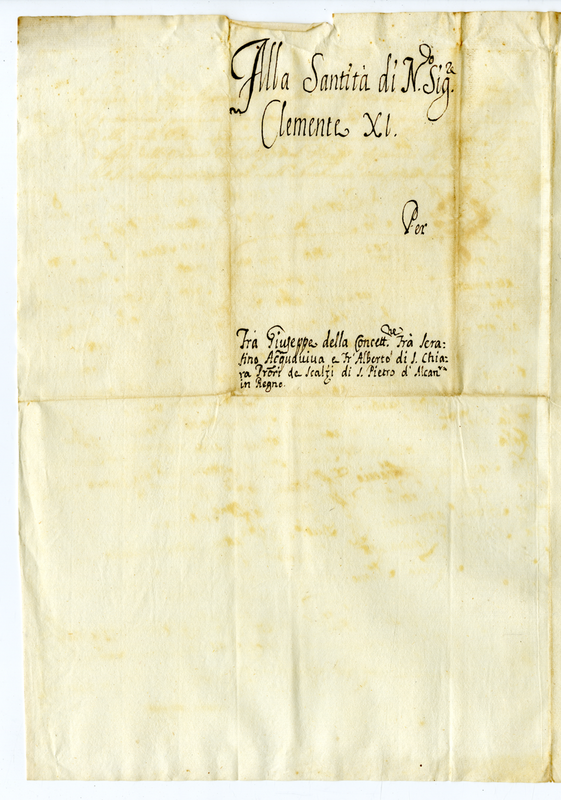 Alla Santità di N.ro Sig.re
Clemente XI.
Per
Fra Giuseppe della Concett.ne Frà Sera:
fino Acquaviua e fr' Alberto di S. Chia:
ra de Scalzi di S. Pietro d' Alcan.ra
in Regno.